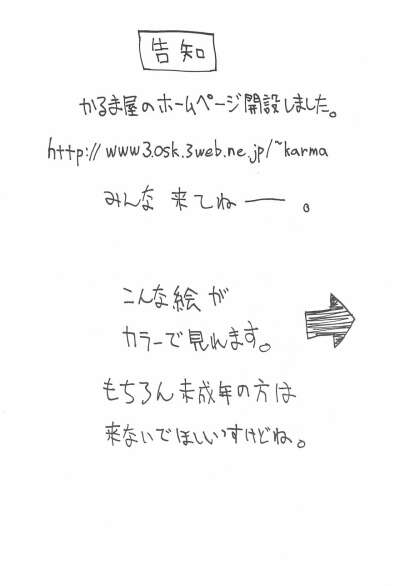 告知
かるま屋のホームページ開設しました。
http://www3.osk.3web.ne.jp/~karma
みんな来てねー。
こんな絵が
カラーで見れます。
もちろん未成年の方は
来ないでほしいっすけどね。